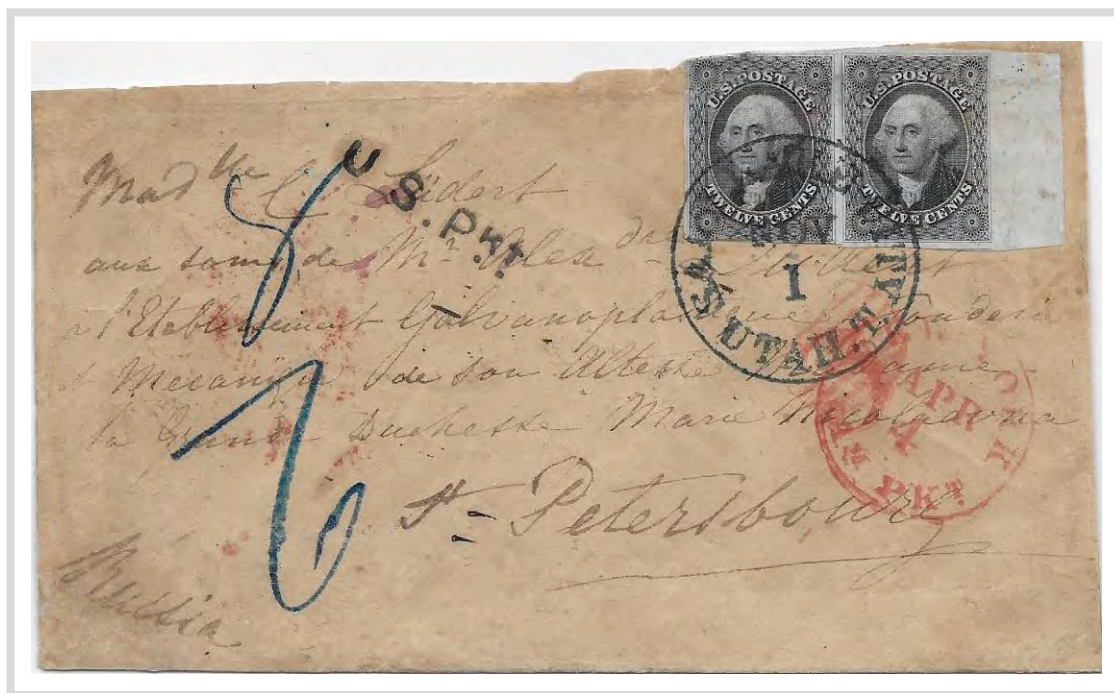 U.S. POSTAGE
TWELVE CENTS
U.S. POSTAGE
TWELVE CENTS
U.S. PKt.
1
UTAH. T.
Madlle C. Lüdert
aux soins de Mr Alex
a l'Etablissement Galvanoplastique Fonderie
et Mecanique de son Altesse Madame
la Grande Duchesse Marie Nicolaevna
St. Petersbourg
Russia
APR
PKT.